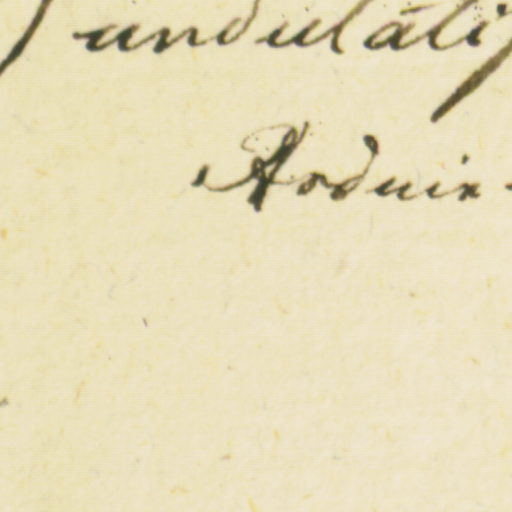 undulatis
Arduin